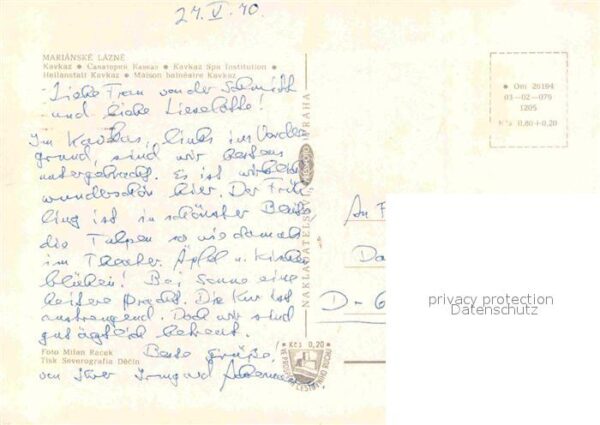 27. V. 70.
MARIÁNSKÉ LÁZNĚ
Kavkaz ● Санаторий Кавказ ● Kavkaz Spa Institution ●
Heilanstalt Kavkaz ● Maison balnéaire Kavkaz
Liebe Frau von der Schmitt
und liebe Lieselotte!
Im Kavkas, links im Vorder
grund, sind wir bestens
untergebracht. Es ist wirklich
wunderschön hier. Der Früh
ling ist in schönster Blüte
die Tulpen so wie damals
im Theater. Äpfel u. Kirschen
blühen! Bei Sonne eine
heitere Pracht. Die Kur ist
anstrengend. Doch wir sind
gut ärztlich betreut.
Beste Grüße!
von Ihrer Irmgard
Foto Milan Racek
Tisk Severografia Děčín
NAKLADATELSTVÍ PRAHA
Kčs 0,20
● Om 26184
03-02-076
1205
Kčs 0,80+0,20
An F
Da
D-6
privacy protection
Datenschutz